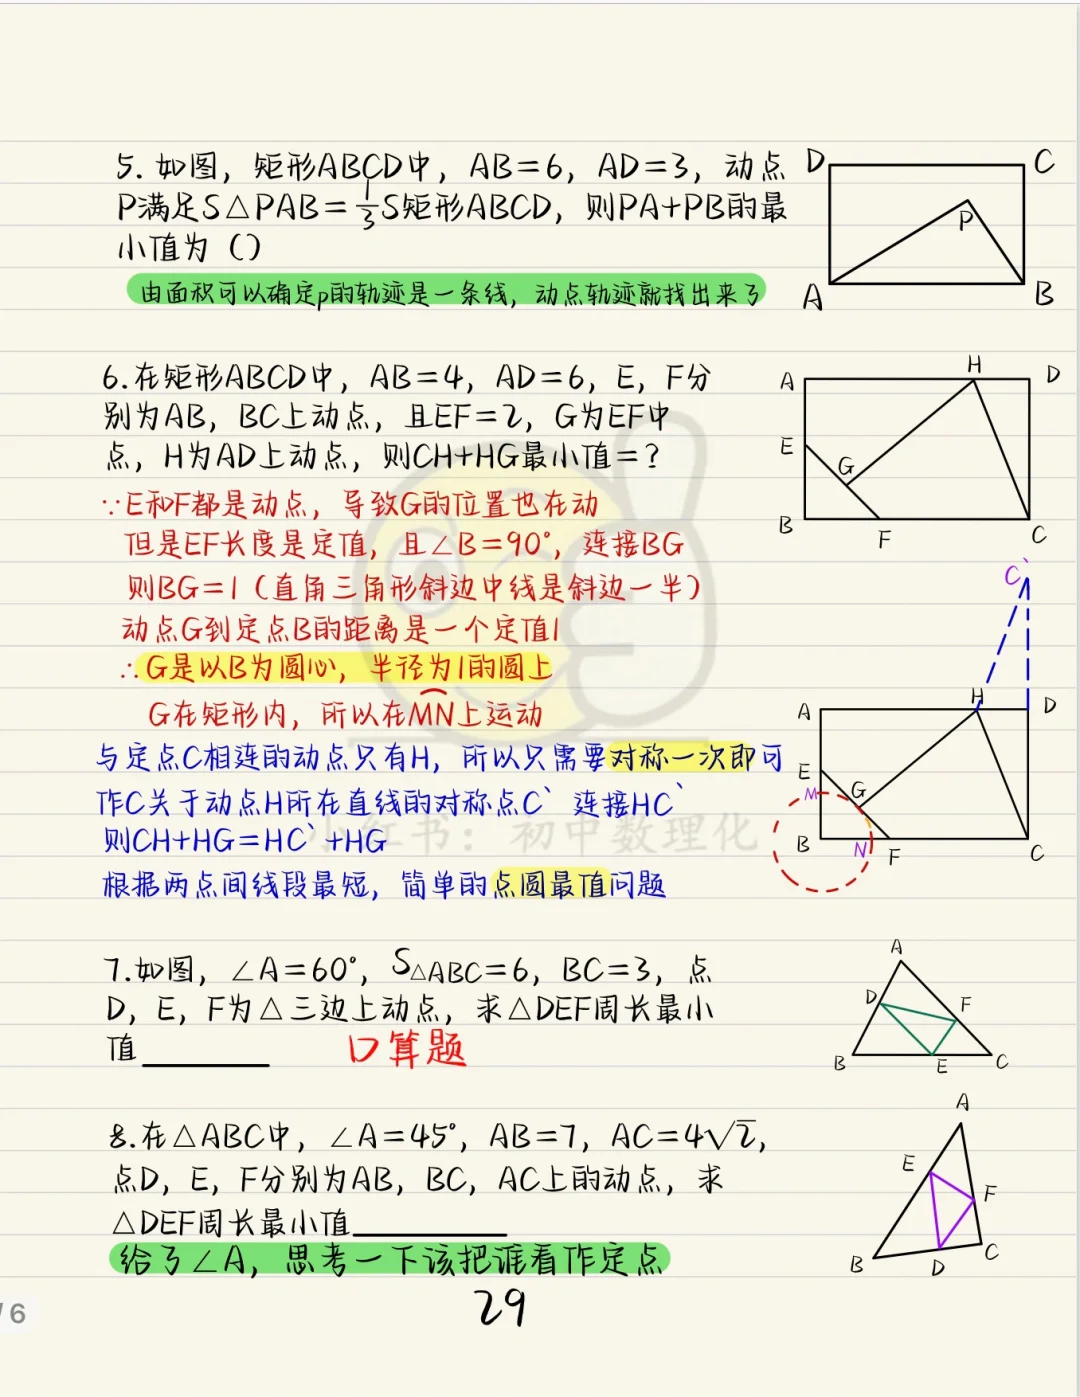 5. 如图，矩形ABCD中，AB=6，AD=3，动点
P满足S△PAB=1/3S矩形ABCD，则PA+PB的最
小值为（）
由面积可以确定p的轨迹是一条线，动点轨迹就找出来了
D
C
P
A
B
6.在矩形ABCD中，AB=4，AD=6，E，F分
别为AB，BC上动点，且EF=2，G为EF中
点，H为AD上动点，则CH+HG最小值=？
A
H
D
E
G
B
F
C
∵E和F都是动点，导致G的位置也在动
但是EF长度是定值，且∠B=90°，连接BG
则BG=1（直角三角形斜边中线是斜边一半）
动点G到定点B的距离是一个定值1
∴G是以B为圆心，半径为1的圆上
G在矩形内，所以在MN上运动
与定点C相连的动点只有H，所以只需要对称一次即可
作C关于动点H所在直线的对称点C` 连接HC`
则CH+HG=HC`+HG
根据两点间线段最短，简单的点圆最值问题
C`
A
H
D
E
M
G
B
N
F
C
小红书：初中数理化
7.如图，∠A=60°，S△ABC=6，BC=3，点
D，E，F为△三边上动点，求△DEF周长最小
值
口算题
A
D
F
B
E
C
8.在△ABC中，∠A=45°，AB=7，AC=4√2，
点D，E，F分别为AB，BC，AC上的动点，求
△DEF周长最小值
给了∠A，思考一下该把谁看作定点
A
E
F
B
D
C
29
/6